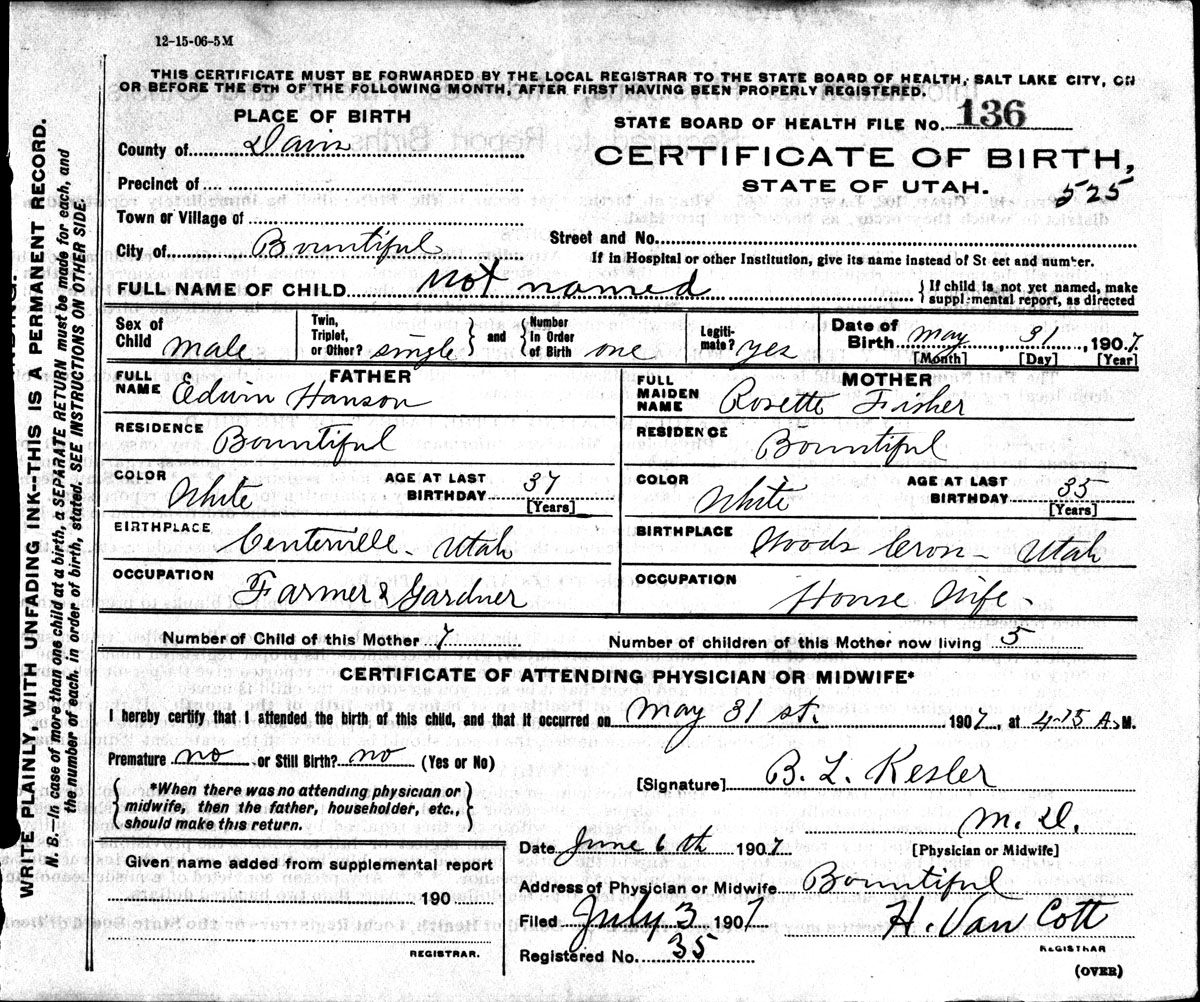 12-15-06-5M
THIS CERTIFICATE MUST BE FORWARDED BY THE LOCAL REGISTRAR TO THE STATE BOARD OF HEALTH, SALT LAKE CITY, ON
OR BEFORE THE 5TH OF THE FOLLOWING MONTH, AFTER FIRST HAVING BEEN PROPERLY REGISTERED.
PLACE OF BIRTH
STATE BOARD OF HEALTH FILE No. 136
County of Davis
CERTIFICATE OF BIRTH,
STATE OF UTAH.
525
Precinct of
Town or Village of
City of Bountiful
Street and No.
If in Hospital or other Institution, give its name instead of St eet and number.
FULL NAME OF CHILD not named
If child is not yet named, make
suppl mental report, as directed
Sex of Child male
Twin, Triplet, or Other? single
and
Number in Order of Birth one
Legiti- mate? yes
Date of Birth May 31, 1907
[Month] [Day] [Year]
FATHER
FULL NAME Edwin Hanson
RESIDENCE Bountiful
COLOR White
AGE AT LAST BIRTHDAY 37
[Years]
BIRTHPLACE Centerville Utah
OCCUPATION Farmer & Gardner
MOTHER
FULL MAIDEN NAME Rosette Fisher
RESIDENCE Bountiful
COLOR White
AGE AT LAST BIRTHDAY 35
[Years]
BIRTHPLACE Woods Cros- Utah
OCCUPATION House Wife-
Number of Child of this Mother 7
Number of children of this Mother now living 5
CERTIFICATE OF ATTENDING PHYSICIAN OR MIDWIFE*
I hereby certify that I attended the birth of this child, and that it occurred on May 31 st. 1907, at 4-15 A. M.
Premature no or Still Birth? no (Yes or No)
[Signature] B. L. Kesler
M. D.
[Physician or Midwife]
*When there was no attending physician or
midwife, then the father, householder, etc.,
should make this return.
Date June 6th 1907
Given name added from supplemental report
190
REGISTRAR.
Address of Physician or Midwife Bountiful
Filed July 3 1907 H. Van Cott
REGISTRAR
Registered No. 35
(OVER)
WRITE PLAINLY, WITH UNFADING INK--THIS IS A PERMANENT RECORD.
N. B.—In case of more than one child at a birth, a SEPARATE RETURN must be made for each, and
the number of each, in order of birth, stated. SEE INSTRUCTIONS ON OTHER SIDE.